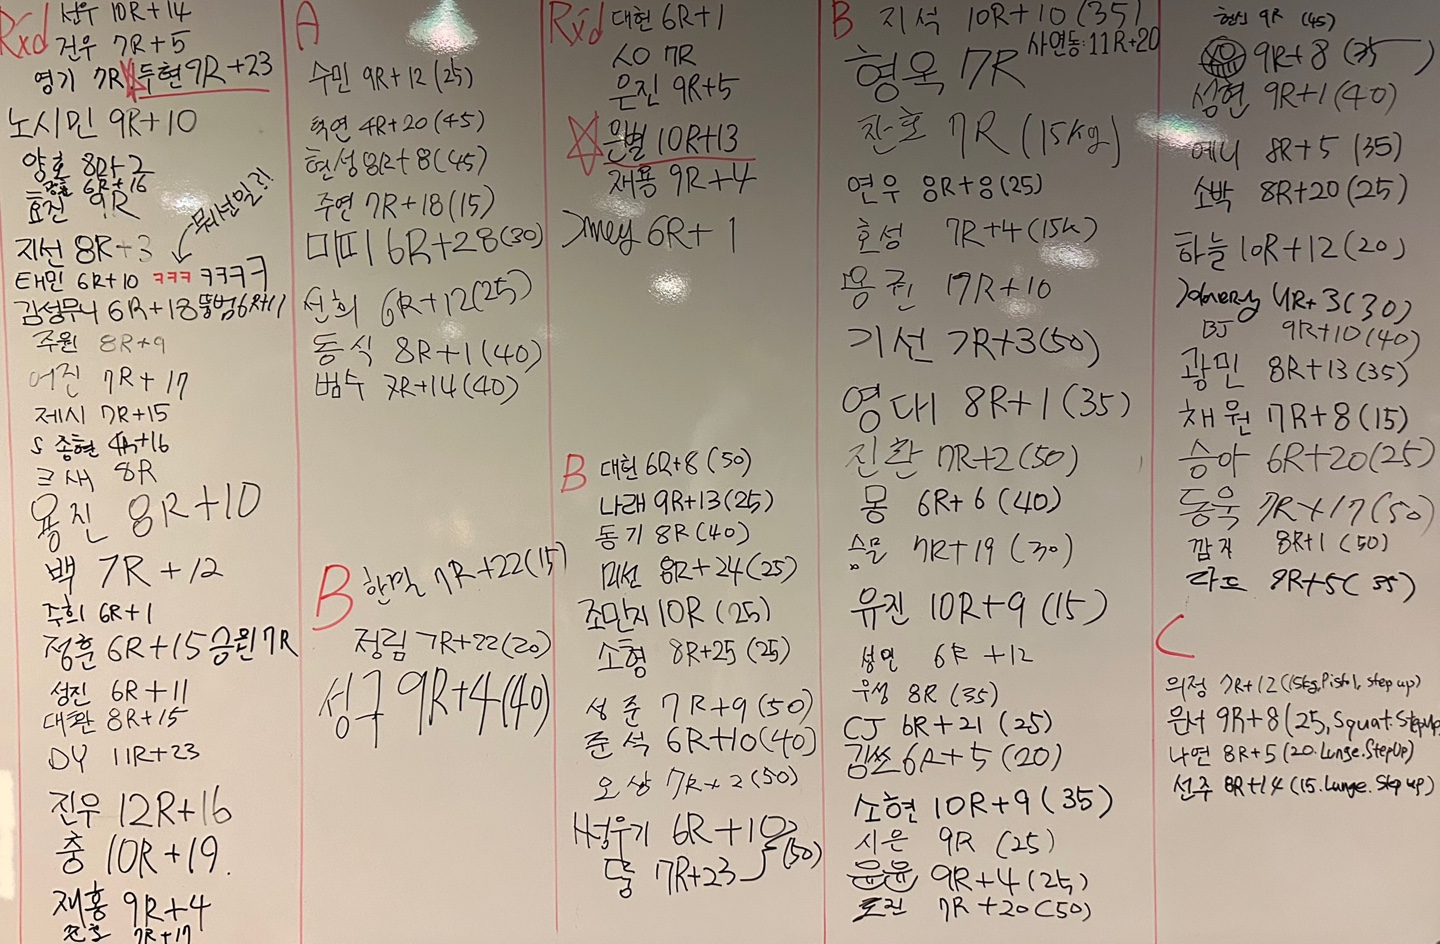 Rxd
선우 10R+14
건우 7R+5
영기 7R 두현 9R+23
노시민 9R+10
양호 8R+2
6R+16
효진 9R
뭐보일?!
지선 8R+3
태민 6R+10 ㅋㅋㅋ ㅋㅋㅋㅋ
김성무니 6R+18 뚱범 6R+11
주원 8R+9
어진 7R+17
제시 7R+15
S 종현 4R+16
크새 8R
용진 8R+10
백 7R+12
주희 6R+1
정훈 6R+15 승원 7R
성진 6R+11
대환 8R+15
DY 11R+23
진우 12R+16
충 10R+19.
재홍 9R+4
진호 7R+17
A
수민 9R+12 (25)
혁연 4R+20 (45)
현성 8R+8 (45)
주연 7R+18 (15)
미피 6R+28 (30)
선희 6R+12 (25)
동식 8R+1 (40)
범수 7R+14 (40)
B
한밀 7R+22 (15)
정림 7R+22 (20)
성구 9R+4 (40)
Rxd
대현 6R+1
7R
은진 9R+5
은별 10R+13
재용 9R+4
6R+1
B
대현 6R+8 (50)
나래 9R+13 (25)
동기 8R (40)
미선 8R+24 (25)
조만지 10R (25)
소형 8R+25 (25)
성준 7R+9 (50)
준석 6R+10 (40)
오상 7R+2 (50)
6R+10
7R+23 (50)
B
지석 10R+10 (35)
사연동: 11R+20
형옥 7R
찬호 7R (15kg)
연우 8R+8 (25)
호성 7R+4 (15k)
몽진 17R+10
기선 7R+3 (50)
영대 8R+1 (35)
진환 7R+2 (50)
몽 6R+6 (40)
승문 7R+19 (30)
유진 10R+9 (15)
성민 6R+12
우성 8R (35)
CJ 6R+21 (25)
김쏘 6R+5 (20)
소현 10R+9 (35)
시은 9R (25)
윤윤 9R+4 (25)
도진 7R+20 (50)
현신 9R (45)
9R+8 (35)
성현 9R+1 (40)
에니 8R+5 (35)
소박 8R+20 (25)
하늘 10R+12 (20)
4R+3 (30)
BJ 9R+10 (40)
광민 8R+13 (35)
채원 7R+8 (15)
승아 6R+20 (25)
동욱 7R+17 (50)
깜지 8R+1 (50)
라드 8R+5 (35)
C
의정 7R+12 (15kg, Pistol, step up)
은서 9R+8 (25, Squat. StepUp)
나연 8R+5 (20. Lunge. StepUp)
선주 8R+14 (15. Lunge. Step up)